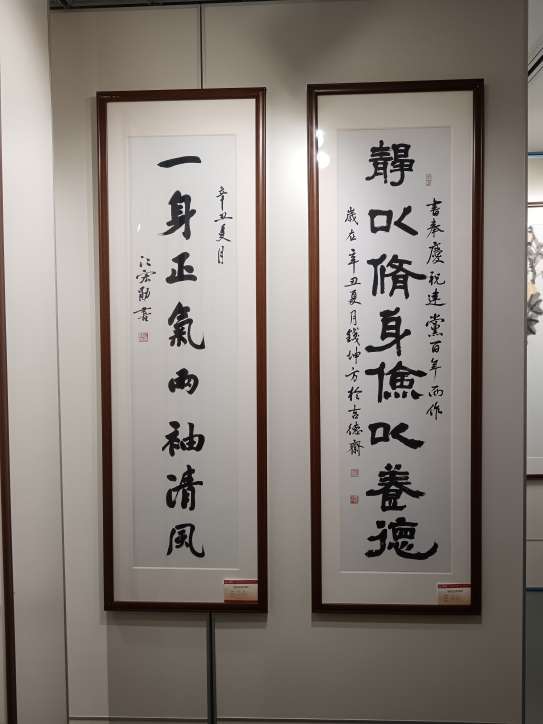 靜以脩身儉以養德
書奉慶祝建黨百年而作
歲在辛丑夏月錢坤方於吉德齋
一身正氣兩袖清風
辛丑夏月
江宏勛書